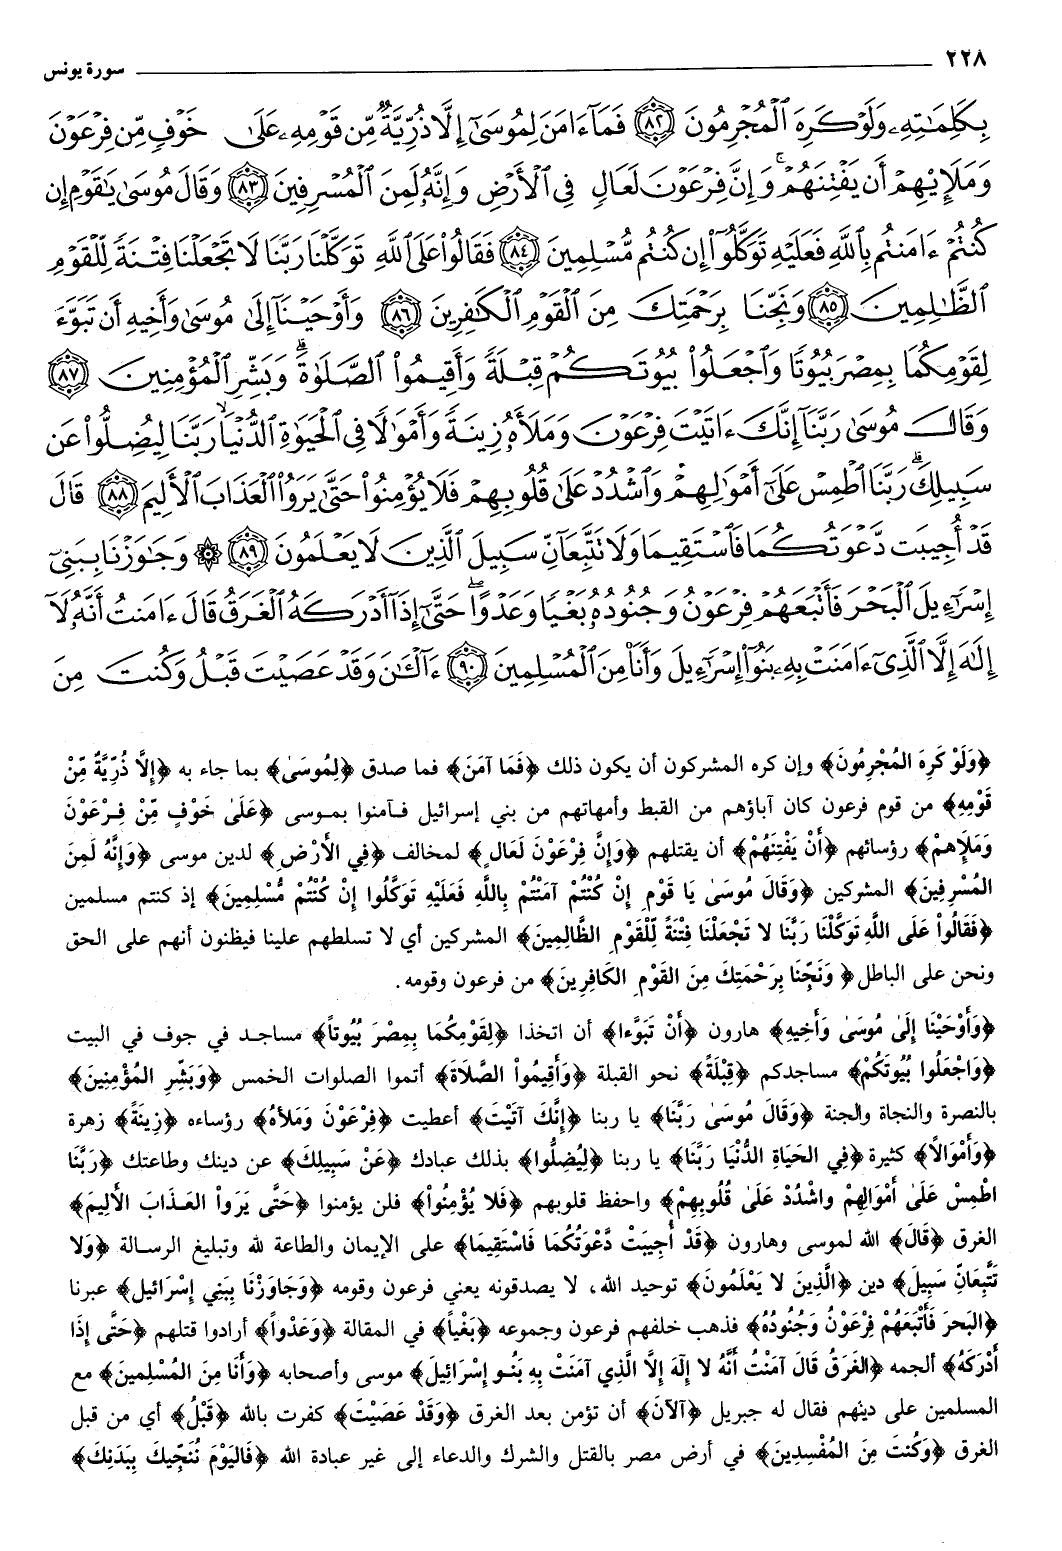 ٢٢٨ سورة يونس
بِكَلِمَٰتِهِۦ وَلَوْ كَرِهَ ٱلْمُجْرِمُونَ ﴿٨٢﴾ فَمَآ ءَامَنَ لِمُوسَىٰٓ إِلَّا ذُرِّيَّةٌ مِّن قَوْمِهِۦ عَلَىٰ خَوْفٍ مِّن فِرْعَوْنَ
وَمَلَإِيْهِمْ أَن يَفْتِنَهُمْ ۚ وَإِنَّ فِرْعَوْنَ لَعَالٍ فِى ٱلْأَرْضِ وَإِنَّهُۥ لَمِنَ ٱلْمُسْرِفِينَ ﴿٨٣﴾ وَقَالَ مُوسَىٰ يَٰقَوْمِ إِن
كُنتُمْ ءَامَنتُم بِٱللَّهِ فَعَلَيْهِ تَوَكَّلُوٓا۟ إِن كُنتُم مُّسْلِمِينَ ﴿٨٤﴾ فَقَالُوا۟ عَلَى ٱللَّهِ تَوَكَّلْنَا رَبَّنَا لَا تَجْعَلْنَا فِتْنَةً لِّلْقَوْمِ
ٱلظَّٰلِمِينَ ﴿٨٥﴾ وَنَجِّنَا بِرَحْمَتِكَ مِنَ ٱلْقَوْمِ ٱلْكَٰفِرِينَ ﴿٨٦﴾ وَأَوْحَيْنَآ إِلَىٰ مُوسَىٰ وَأَخِيهِ أَن تَبَوَّءَا
لِقَوْمِكُمَا بِمِصْرَ بُيُوتًا وَٱجْعَلُوا۟ بُيُوتَكُمْ قِبْلَةً وَأَقِيمُوا۟ ٱلصَّلَوٰةَ ۗ وَبَشِّرِ ٱلْمُؤْمِنِينَ ﴿٨٧﴾
وَقَالَ مُوسَىٰ رَبَّنَآ إِنَّكَ ءَاتَيْتَ فِرْعَوْنَ وَمَلَأَهُۥ زِينَةً وَأَمْوَٰلًا فِى ٱلْحَيَوٰةِ ٱلدُّنْيَا رَبَّنَا لِيُضِلُّوا۟ عَن
سَبِيلِكَ ۖ رَبَّنَا ٱطْمِسْ عَلَىٰٓ أَمْوَٰلِهِمْ وَٱشْدُدْ عَلَىٰ قُلُوبِهِمْ فَلَا يُؤْمِنُوا۟ حَتَّىٰ يَرَوُا۟ ٱلْعَذَابَ ٱلْأَلِيمَ ﴿٨٨﴾ قَالَ
قَدْ أُجِيبَت دَّعْوَتُكُمَا فَٱسْتَقِيمَا وَلَا تَتَّبِعَآنِّ سَبِيلَ ٱلَّذِينَ لَا يَعْلَمُونَ ﴿٨٩﴾ ۞ وَجَٰوَزْنَا بِبَنِىٓ
إِسْرَٰٓءِيلَ ٱلْبَحْرَ فَأَتْبَعَهُمْ فِرْعَوْنُ وَجُنُودُهُۥ بَغْيًا وَعَدْوًا ۖ حَتَّىٰٓ إِذَآ أَدْرَكَهُ ٱلْغَرَقُ قَالَ ءَامَنتُ أَنَّهُۥ لَآ
إِلَٰهَ إِلَّا ٱلَّذِىٓ ءَامَنَتْ بِهِۦ بَنُوٓا۟ إِسْرَٰٓءِيلَ وَأَنَا۠ مِنَ ٱلْمُسْلِمِينَ ﴿٩٠﴾ ءَآلْـَٰٔنَ وَقَدْ عَصَيْتَ قَبْلُ وَكُنتَ مِنَ
﴿وَلَوْ كَرِهَ المُجْرِمُونَ﴾ وإن كره المشركون أن يكون ذلك ﴿فَمَا آمَنَ﴾ فما صدق ﴿لِمُوسَىٰ﴾ بما جاء به ﴿إِلَّا ذُرِّيَّةٌ مِّنْ
قَوْمِهِ﴾ من قوم فرعون كان آباؤهم من القبط وأمهاتهم من بني إسرائيل فآمنوا بموسى ﴿عَلَىٰ خَوْفٍ مِّنْ فِرْعَوْنَ
وَمَلَإِهِمْ﴾ رؤسائهم ﴿أَنْ يَفْتِنَهُمْ﴾ أن يقتلهم ﴿وَإِنَّ فِرْعَوْنَ لَعَالٍ﴾ لمخالف ﴿فِي الأَرْضِ﴾ لدين موسى ﴿وَإِنَّهُ لَمِنَ
المُسْرِفِينَ﴾ المشركين ﴿وَقَالَ مُوسَىٰ يَا قَوْمِ إِنْ كُنْتُمْ آمَنْتُمْ بِاللَّهِ فَعَلَيْهِ تَوَكَّلُوا إِنْ كُنْتُمْ مُّسْلِمِينَ﴾ إذ كنتم مسلمين
﴿فَقَالُواْ عَلَى اللَّهِ تَوَكَّلْنَا رَبَّنَا لا تَجْعَلْنَا فِتْنَةً لِّلْقَوْمِ الظَّالِمِينَ﴾ المشركين أي لا تسلطهم علينا فيظنون أنهم على الحق
ونحن على الباطل ﴿وَنَجِّنَا بِرَحْمَتِكَ مِنَ القَوْمِ الكَافِرِينَ﴾ من فرعون وقومه.
﴿وَأَوْحَيْنَا إِلَىٰ مُوسَىٰ وَأَخِيهِ﴾ هارون ﴿أَنْ تَبَوَّءا﴾ أن اتخذا ﴿لِقَوْمِكُمَا بِمِصْرَ بُيُوتاً﴾ مساجد في جوف في البيت
﴿وَاجْعَلُوا بُيُوتَكُمْ﴾ مساجدكم ﴿قِبْلَةً﴾ نحو القبلة ﴿وَأَقِيمُواْ الصَّلَاةَ﴾ أتموا الصلوات الخمس ﴿وَبَشِّرِ المُؤْمِنِينَ﴾
بالنصرة والنجاة والجنة ﴿وَقَالَ مُوسَىٰ رَبَّنَا﴾ يا ربنا ﴿إِنَّكَ آتَيْتَ﴾ أعطيت ﴿فِرْعَوْنَ وَمَلأهُ﴾ رؤساءه ﴿زِينَةً﴾ زهرة
﴿وَأَمْوَالاً﴾ كثيرة ﴿فِي الحَيَاةِ الدُّنْيَا رَبَّنَا﴾ يا ربنا ﴿لِيُضِلُّوا﴾ بذلك عبادك ﴿عَنْ سَبِيلِكَ﴾ عن دينك وطاعتك ﴿رَبَّنَا
اطْمِسْ عَلَىٰ أَمْوَالِهِمْ واشْدُدْ عَلَىٰ قُلُوبِهِمْ﴾ واحفظ قلوبهم ﴿فَلا يُؤْمِنُواْ﴾ فلن يؤمنوا ﴿حَتَّى يَرَواْ العَذَابَ الأَلِيمَ﴾
الغرق ﴿قَالَ﴾ الله لموسى وهارون ﴿قَدْ أُجِيبَتْ دَّعْوَتُكُمَا فَاسْتَقِيمَا﴾ على الإيمان والطاعة لله وتبليغ الرسالة ﴿وَلا
تَتَّبِعَانِّ سَبِيلَ﴾ دين ﴿الَّذِينَ لا يَعْلَمُونَ﴾ توحيد الله، لا يصدقونه يعني فرعون وقومه ﴿وَجَاوَزْنَا بِبَنِي إِسْرَائيلَ﴾ عبرنا
﴿البَحرَ فَأَتْبَعَهُمْ فِرْعَوْنُ وَجُنُودُهُ﴾ فذهب خلفهم فرعون وجموعه ﴿بَغْياً﴾ في المقالة ﴿وَعَدْواً﴾ أرادوا قتلهم ﴿حَتَّى إِذَا
أَدْرَكَهُ﴾ ألجمه ﴿الغَرَقُ قَالَ آمَنْتُ أَنَّهُ لا إِلَهَ إِلَّا الَّذِي آمَنَتْ بِهِ بَنُو إِسْرَائِيلَ﴾ موسى وأصحابه ﴿وَأَنَا مِنَ المُسْلِمِينَ﴾ مع
المسلمين على دينهم فقال له جبريل ﴿آلآنَ﴾ أن تؤمن بعد الغرق ﴿وَقَدْ عَصَيْتَ﴾ كفرت بالله ﴿قَبْلُ﴾ أي من قبل
الغرق ﴿وَكُنتَ مِنَ المُفْسِدِينَ﴾ في أرض مصر بالقتل والشرك والدعاء إلى غير عبادة الله ﴿فَاليَوْمَ نُنَجِّيكَ بِبَدَنِكَ﴾